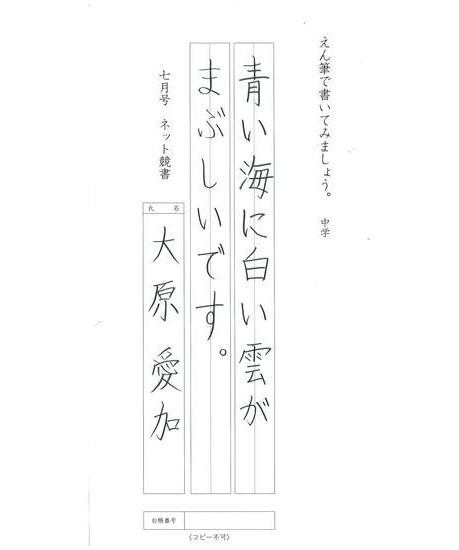 えん筆で書いてみましょう。 中学
青い海に白い雲が
まぶしいです。
七月号 ネット競書
氏 名
大原 愛加
台帳番号
(コピー不可)